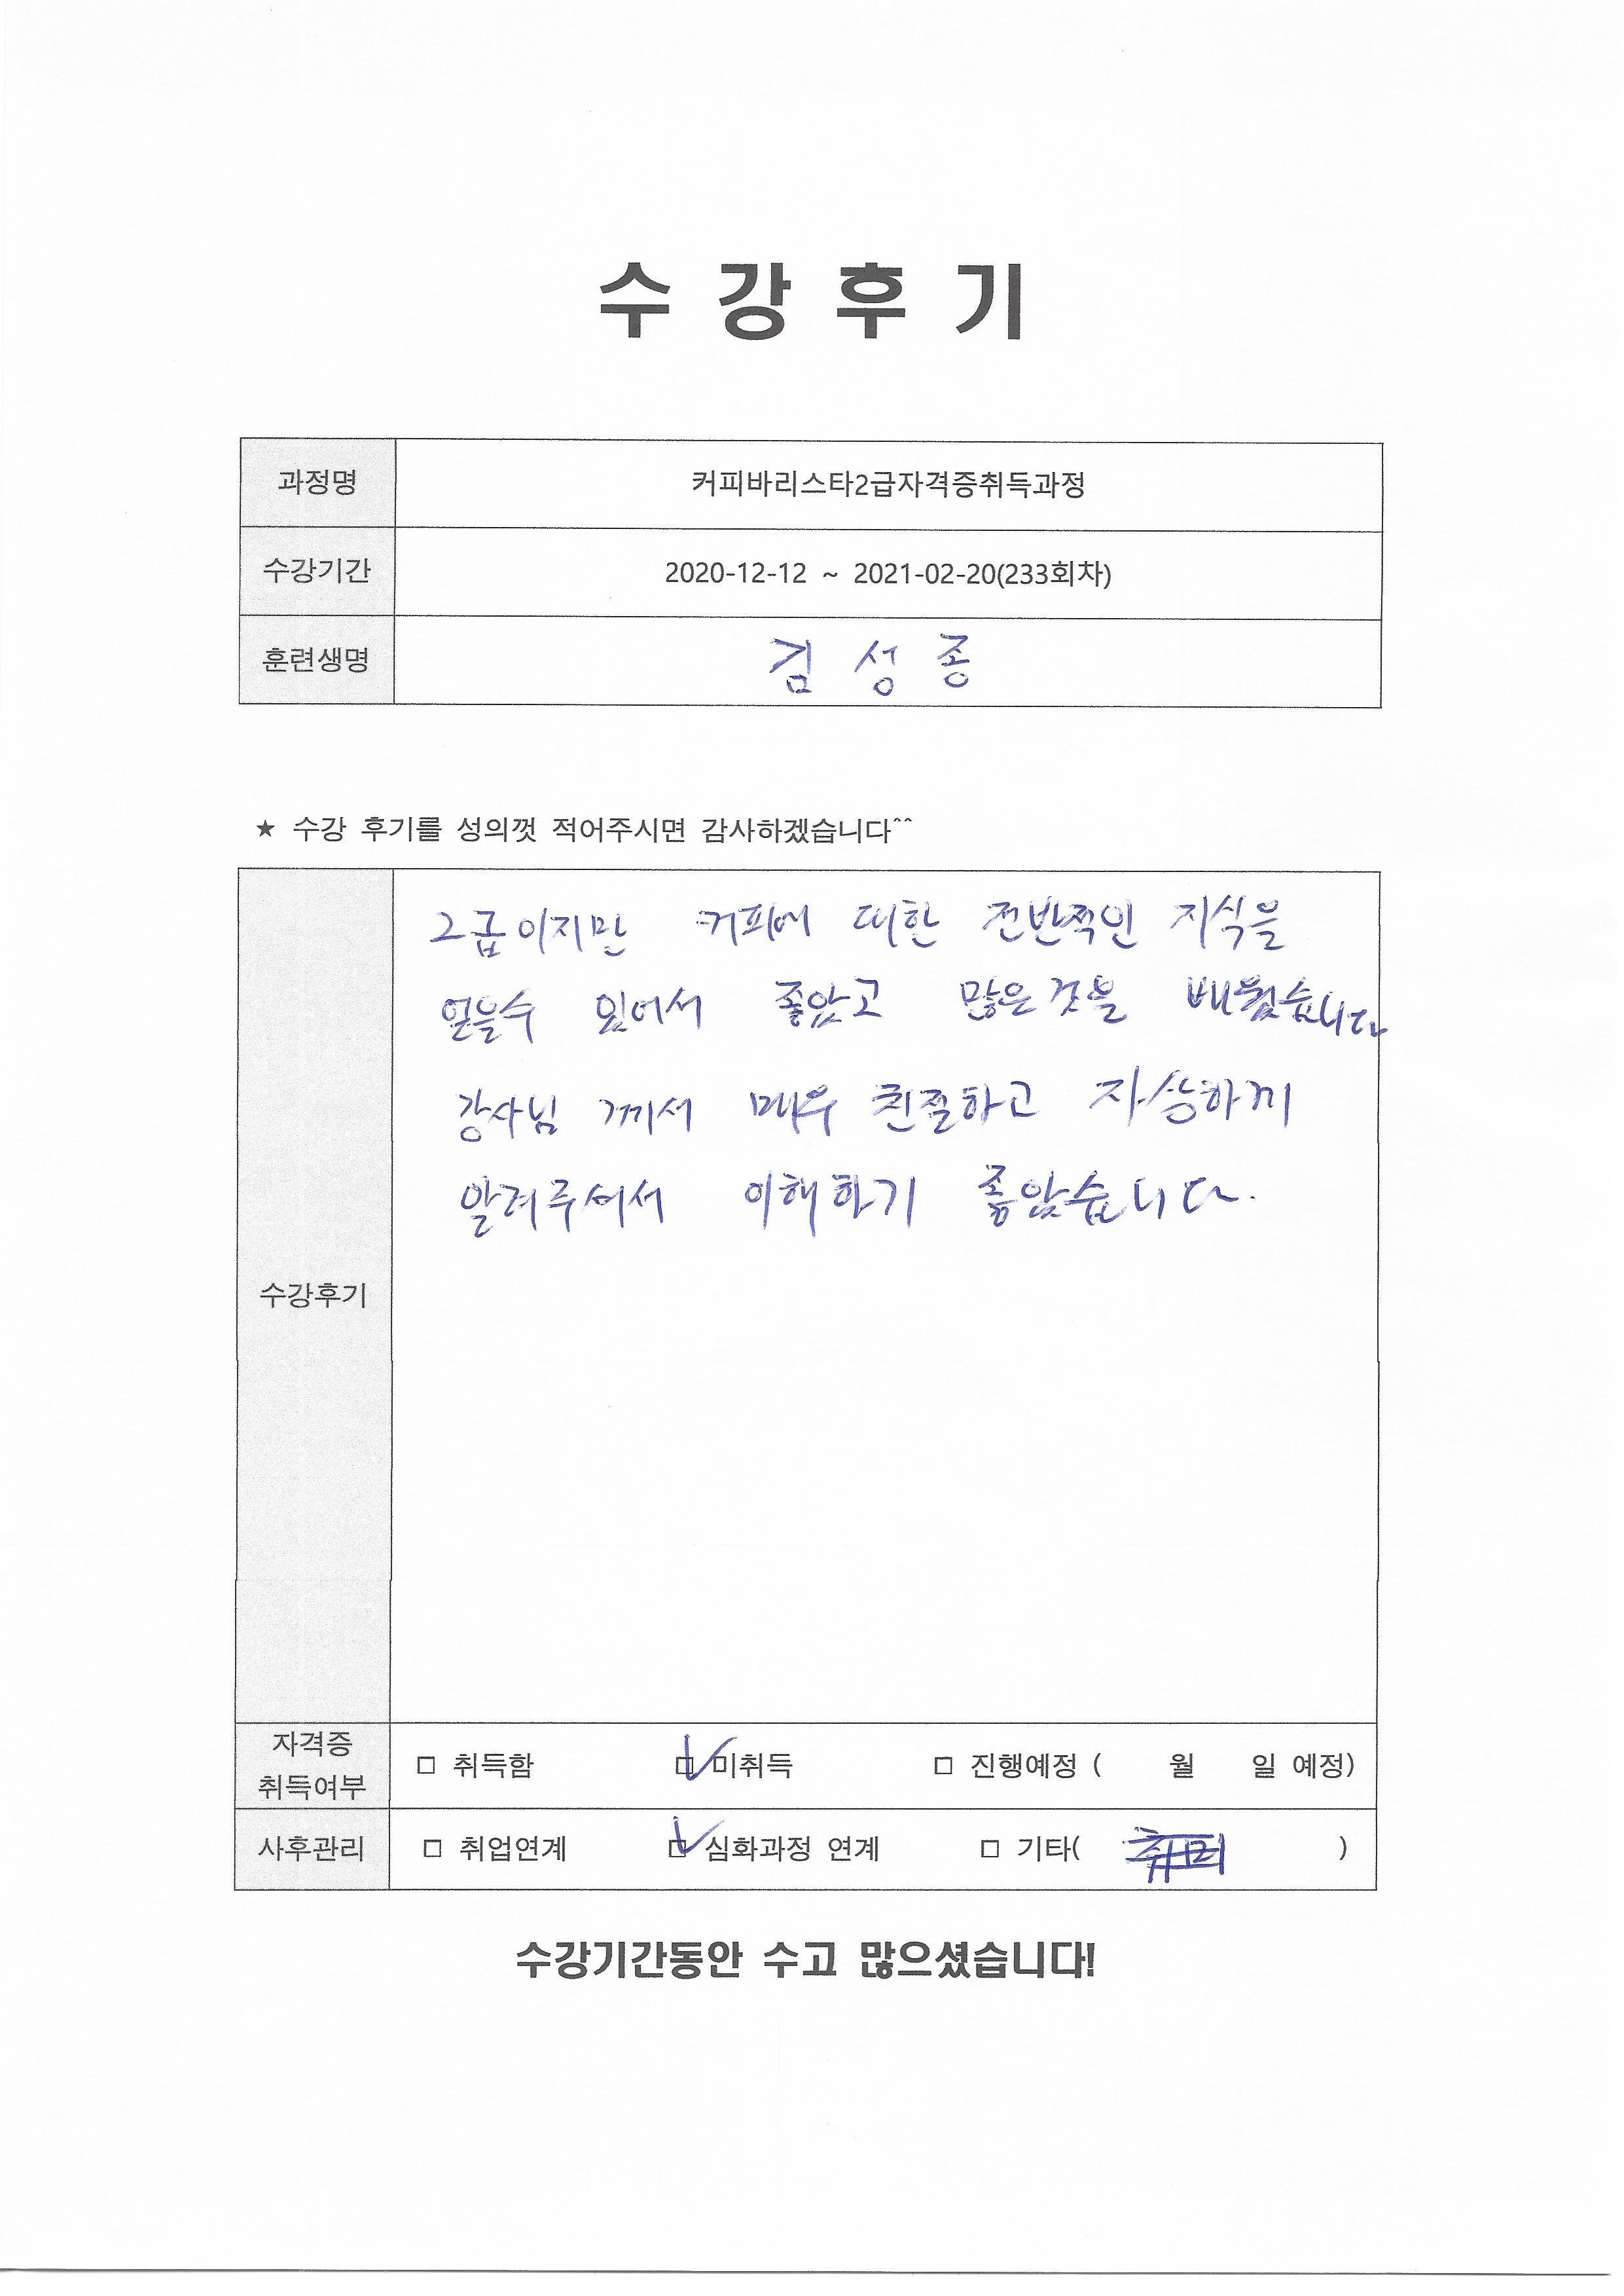 수 강 후 기
과정명 커피바리스타2급자격증취득과정
수강기간 2020-12-12 ~ 2021-02-20(233회차)
훈련생명 김 성 종
★ 수강 후기를 성의껏 적어주시면 감사하겠습니다^^
2급이지만 커피에 대한 전반적인 지식을
얻을수 있어서 좋았고 많은것을 배웠습니다
강사님 께서 매우 친절하고 자상하게
알려주셔서 이해하기 좋았습니다.
수강후기
자격증
취득여부
□ 취득함 □ 미취득 □ 진행예정 ( 월 일 예정)
사후관리 □ 취업연계 □ 심화과정 연계 □ 기타( )
수강기간동안 수고 많으셨습니다!